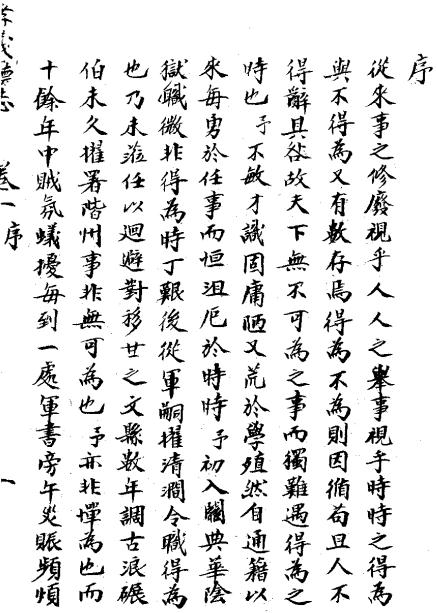 序
從來事之修廢視乎人人之舉事視乎時時之得為
與不得為又有數存焉得為不為則因循苟且人不
得辭其咎故天下無不可為之事而獨難遇得為之
時也予不敏才識固庸陋又荒於學殖然自通籍以
來每勇於任事而恒沮厄於時時予初入關典華陰
獄職微非得為時丁艱後從軍嗣擢清澗令職得為
也乃未蒞任以迴避對移甘之文縣數年調古浪碾
伯未久擢署階州事非無可為也予亦非憚為也而
十餘年中賊氛蟻擾每到一處軍書旁午災賑頻煩
孝義廳志 卷一序 一